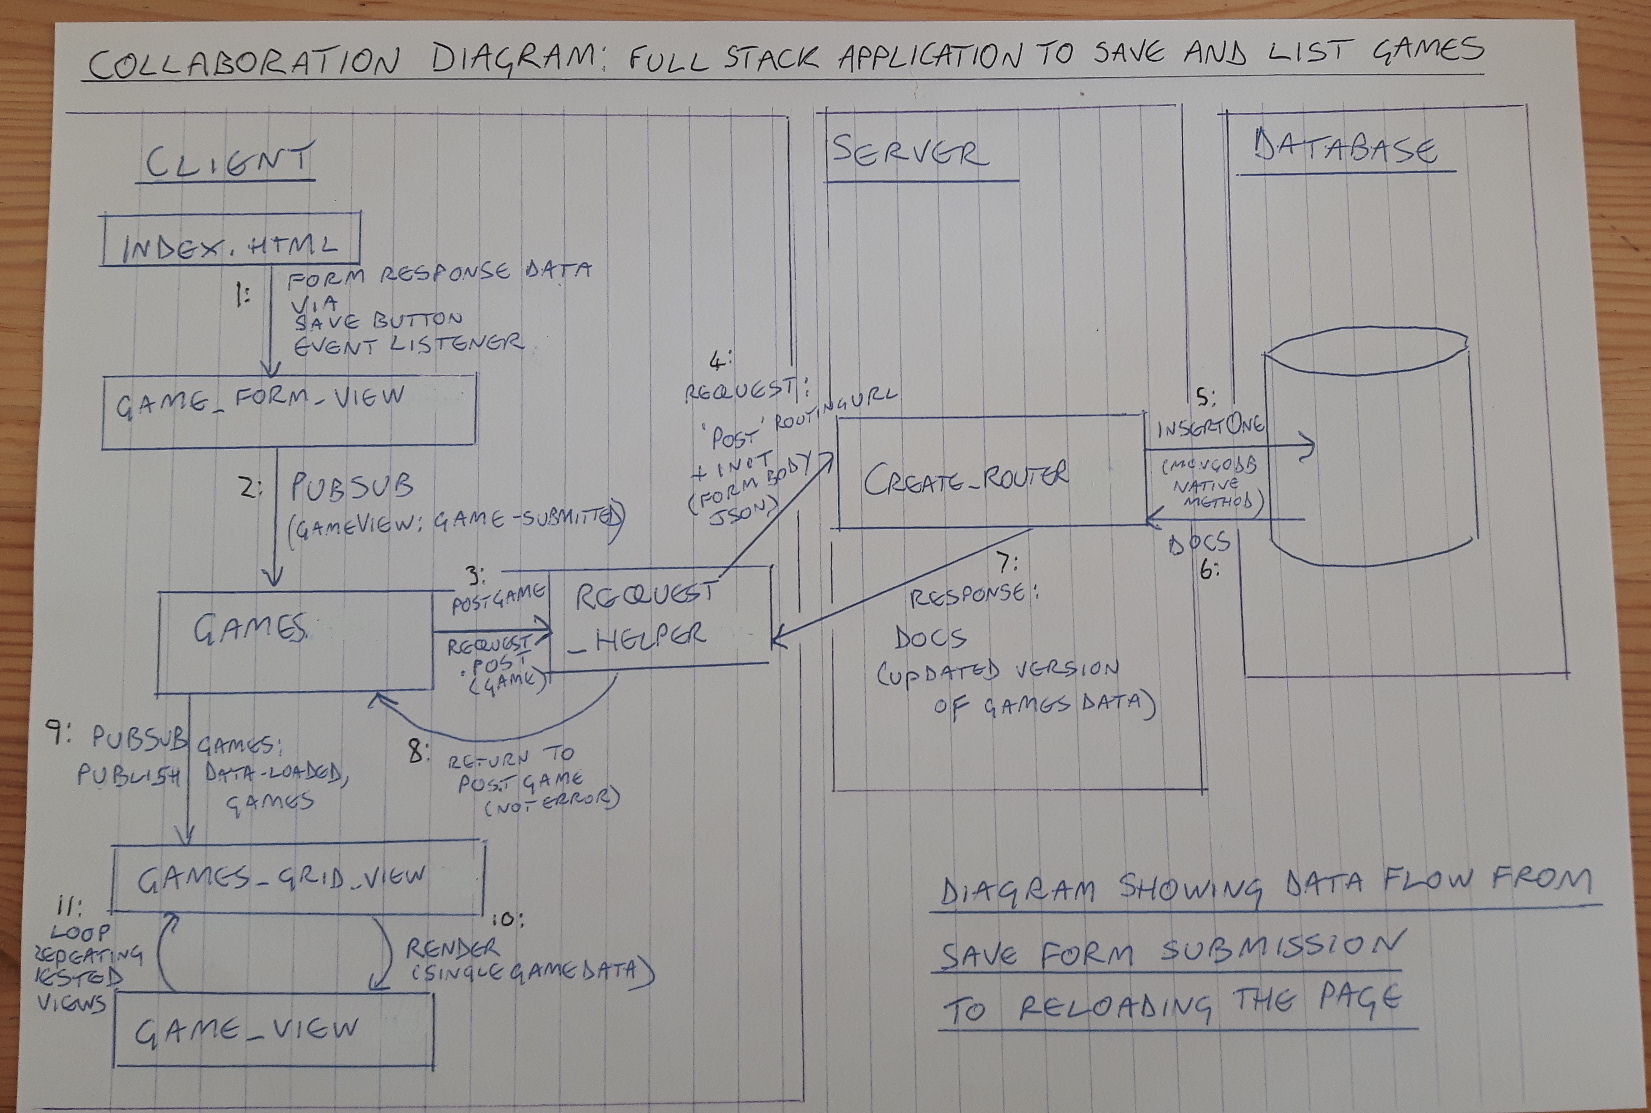 COLLABORATION DIAGRAM: FULL STACK APPLICATION TO SAVE AND LIST GAMES
CLIENT
INDEX.HTML
1:
FORM RESPONSE DATA
VIA
SAVE BUTTON
EVENT LISTENER
GAME_FORM_VIEW
2:
PUBSUB
(GAMEVIEW: GAME-SUBMITTED)
GAMES
3:
POSTGAME
REQUEST
.POST
(GAME)
REQUEST
_HELPER
4:
REQUEST:
'POST' ROUTING URL
+ INIT
(FORM BODY
JSON)
SERVER
CREATE_ROUTER
DATABASE
5:
INSERTONE
(MONGODB
NATIVE
METHOD)
DOCS
6:
7:
RESPONSE:
DOCS
(UPDATED VERSION
OF GAMES DATA)
8:
RETURN TO
POSTGAME
(NOT ERROR)
9:
PUBSUB GAMES:
PUBLISH DATA-LOADED,
GAMES
GAMES_GRID_VIEW
10:
RENDER
(SINGLE GAME DATA)
11:
LOOP
REPEATING
NESTED
VIEWS
GAME_VIEW
DIAGRAM SHOWING DATA FLOW FROM
SAVE FORM SUBMISSION
TO RELOADING THE PAGE